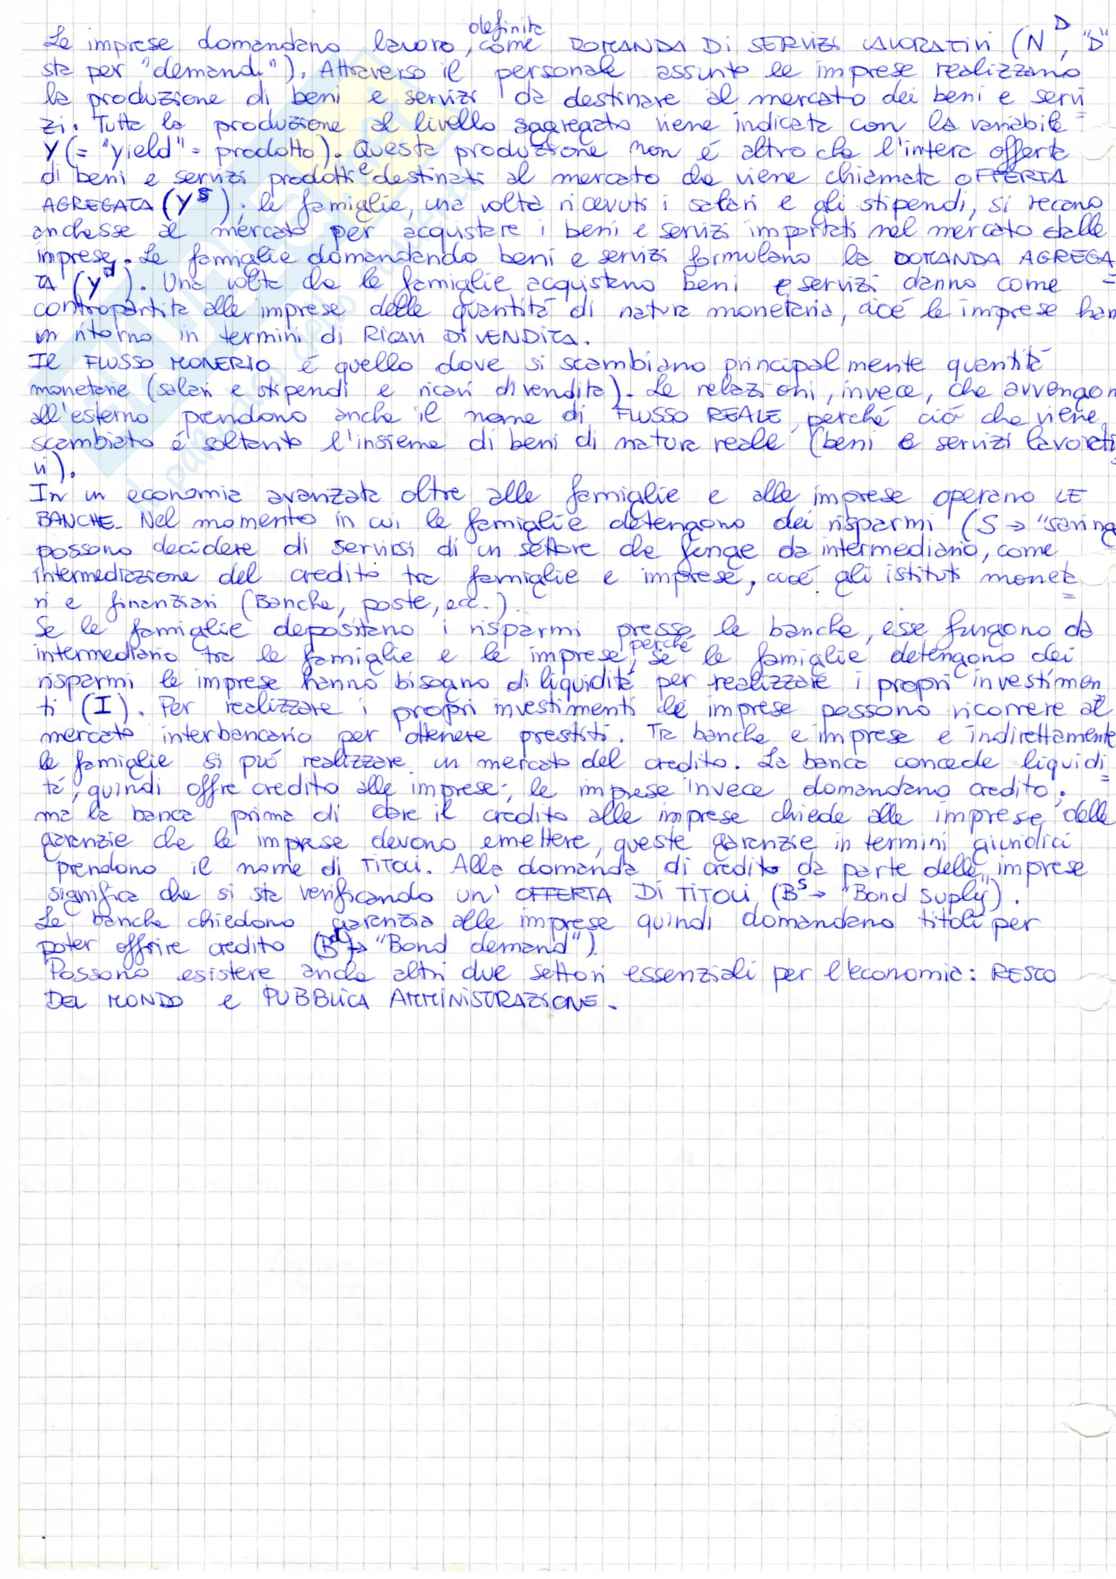 Le imprese domandano lavoro, definita come DOMANDA DI SERVIZI LAVORATIVI (N^D, "D"
sta per "demand"). Attraverso il personale assunto le imprese realizzano
la produzione di beni e servizi da destinare al mercato dei beni e servi
zi. Tutta la produzione al livello aggregato viene indicata con la variabile
Y (= "yield" = prodotto). Questa produzione non é altro che l'intera offerta
di beni e servizi prodotti e destinati al mercato che viene chiamata OFFERTA
AGREGATA (Y^S); le famiglie, una volta ricevuti i salari e gli stipendi, si recano
anchesse al mercato per acquistare i beni e servizi importati nel mercato dalle
imprese. Le famiglie domandando beni e servizi formulano la DOMANDA AGREGA
TA (Y^d). Una volta che le famiglie acquistano beni e servizi danno come
contropartita alle imprese delle quantitá di natura monetaria, cioé le imprese han
un ritorno in termini di RICAVI DI VENDITA.
Il FLUSSO MONERIO é quello dove si scambiano principalmente quantitá
monetarie (salari e stipendi e ricavi di vendita). Le relazioni, invece, che avvengon
all'esterno prendono anche il nome di FLUSSO REALE, perché ció che viene
scambiato é soltanto l'insieme di beni di natura reale (beni e servizi lavorati
vi).
In un economia avanzata oltre alle famiglie e alle imprese operano LE
BANCHE. Nel momento in cui le famiglie detengono dei risparmi (S → "saving
possono decidere di servirsi di un settore che funge da intermediario, come
intermediazione del credito tra famiglie e imprese, cioé gli istituti moneta
ri e finanziari (Banche, poste, ecc.).
Se le famiglie depositano i risparmi presso le banche, esse fungono da
intermediario tra le famiglie e le imprese, perché se le famiglie detengono dei
risparmi le imprese hanno bisogno di liquiditá per realizzare i propri investimen
ti (I). Per realizzare i propri investimenti le imprese possono ricorrere al
mercato interbancario per ottenere prestiti. Tra banche e imprese e indirettamente
le famiglie si puó realizzare un mercato del credito. La banca concede liquidi
tá, quindi offre credito alle imprese; le imprese invece domandano credito;
ma la banca prima di dare il credito alle imprese chiede alle imprese delle
garanzie che le imprese devono emettere, queste garanzie in termini giuridici
prendono il nome di TITOLI. Alla domanda di credito da parte delle imprese
significa che si sta verificando un' OFFERTA DI TITOLI (B^S → "Bond suply").
Le banche chiedono garanzia alle imprese quindi domandano titoli per
poter offrire credito (B^d → "Bond demand").
Possono esistere anche altri due settori essenziali per l'economia: RESTO
DEL MONDO e PUBBLICA AMMINISTRAZIONE.